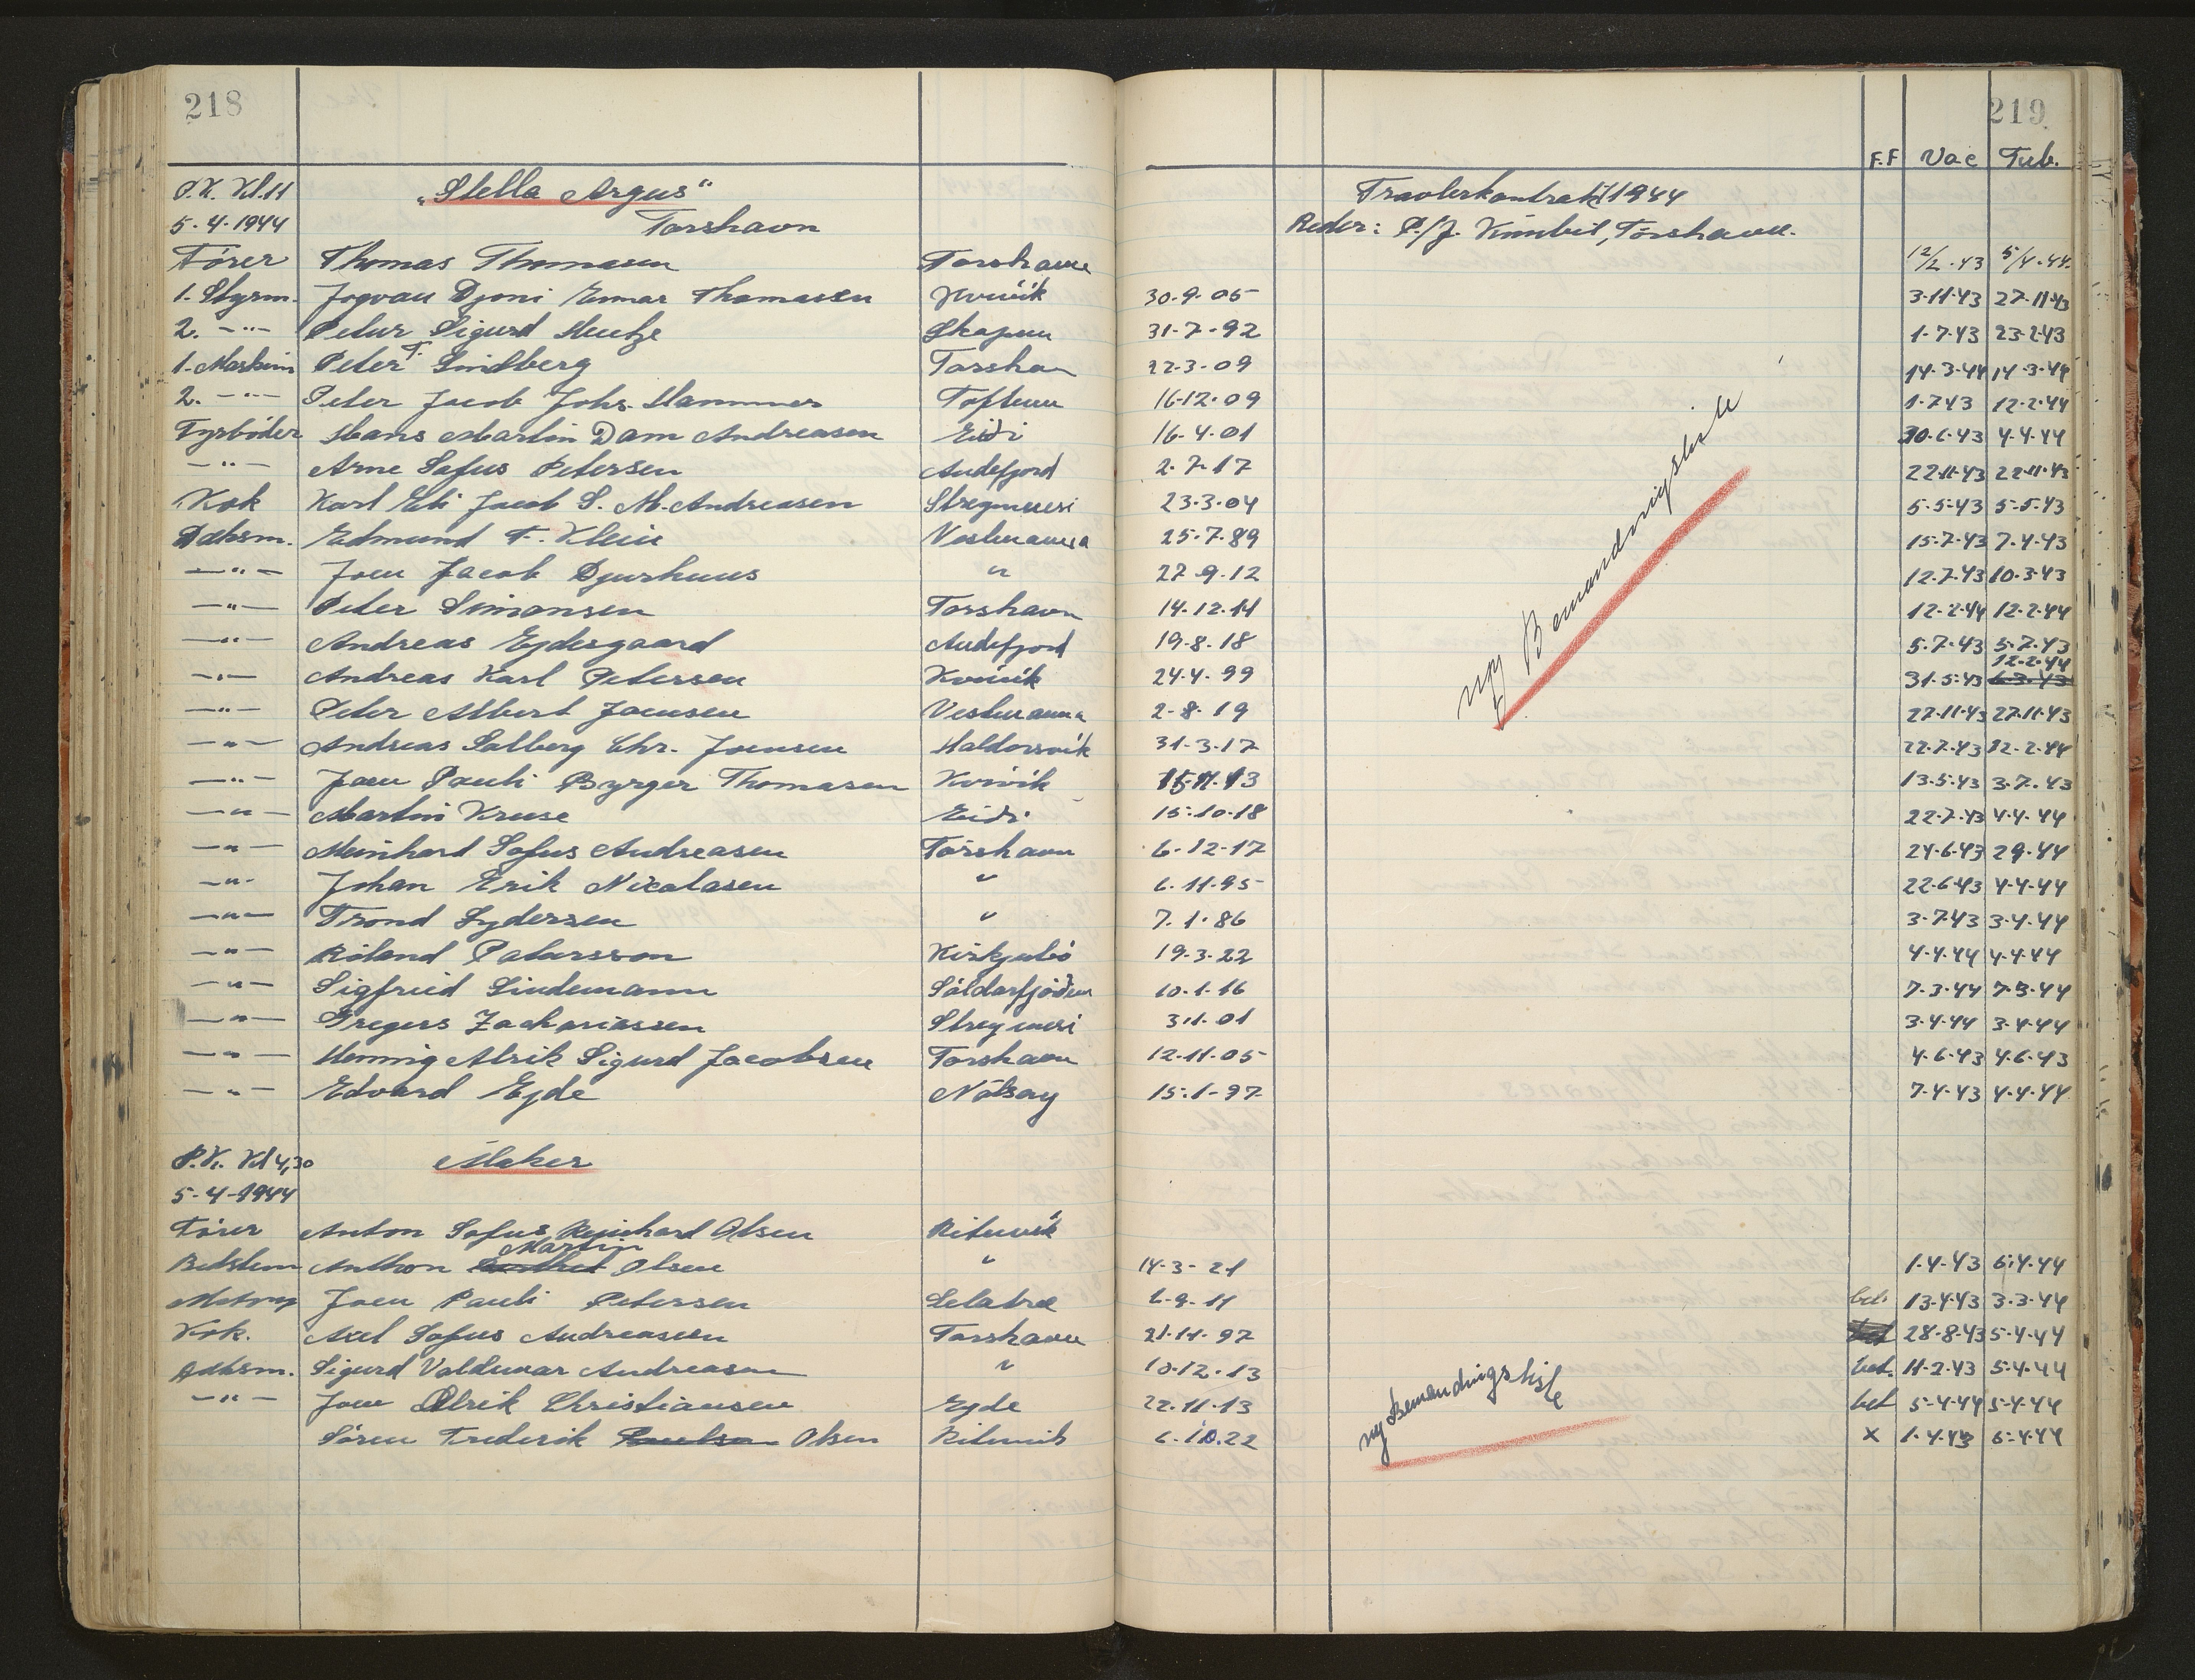 218
219
F.F Vac Tub.
P.K. Kl. 11 „Stella Argus" Travlerkontrakt 1944
5-4-1944 Torshavn Reder: P/J. Thorshavn.
Förer Thomas Thomasen Torshavn 12/2-43 5/4-44.
1. Styrm. Jogvan Djoni Ernar Thomasen Kvivik 30-9-05 3-11-43 27-11-43
2. -"- Petur Sigurd Skapun 31-7-92 1-7-43 23-2-43
1. Maskin Peter F. Lindberg Torshavn 22-3-09 14-3-44 14-3-44
2. -"- Peter Jacob Johs. Hammer Toftum 16-12-09 1-7-43 12-2-44
Fyrböder Hans Martin Dam Andreasen Eidi 16-4-01 30-6-43 4-4-44
-"- Arne Sofus Petersen Andefjord 2-7-17 22-11-43 22-11-43
Kok Karl Eli Jacob S. M. Andreasen Streymnesi 23-3-04 5-5-43 5-5-43
Dæksm. Edmund F. Klein Vestmanna 25-7-89 15-7-43 7-4-43
-"- Joen Jacob Djurhuus " 27-9-12 12-7-43 10-3-43
-"- Peter Simonsen Torshavn 14-12-14 12-2-44 12-2-44
-"- Andreas Ejdesgaard Andefjord 19-8-18 5-7-43 5-7-43
-"- Andreas Karl Petersen Kvivik 24-4-99 31-5-43 12-2-44 6-3-43
-"- Peter Albert Joensen Vestmanna 2-8-19 27-11-43 27-11-43
-"- Andreas Solberg Chr. Joensen Haldorsvik 31-3-17 22-7-43 12-2-44
-"- Joen Pauli Byrger Thomasen Kvivik 15-11-13 13-5-43 3-7-43
-"- Martin Kruse Eidi 15-10-18 22-7-43 4-4-44
-"- Meinhard Sofus Andreasen Torshavn 6-12-17 24-6-43 29-44
-"- Johan Erik Nicolasen " 6-11-95 22-6-43 4-4-44
-"- Trond Lydersen " 7-1-86 3-7-43 3-4-44
-"- Roland Patursson Kirkjubö 19-3-22 4-4-44 4-4-44
-"- Sigfried Lindemann Söldarfjödur 10-1-16 7-3-44 7-3-44
-"- Gregers Zachariassen Streymnesi 3-1-01 3-4-44 3-4-44
-"- Henning Alrik Sigurd Jacobsen Torshavn 12-11-05 4-6-43 4-6-43
-"- Edvard Ejde Nólsoy 15-1-97 7-4-43 4-4-44
ny Bemandingsliste
P.K. Kl 4,30 Maker
5-4-1944
Förer Anton Sofus Reinhard Olsen Rituvik
Bedstem Anthon Martin Olsen " 14-3-21 1-4-43 6-4-44
Motorp Joen Pauli Petersen Selatræ 2-9-11 bet. 13-4-43 3-3-44
Kok. Axel Sofus Andreasen Torshavn 21-11-97 28-8-43 5-4-44
Dæksm. Sigurd Valdemar Andreasen " 10-12-13 bet. 11-2-43 5-4-44
-"- Joen Olrik Christiansen Ejde 22-11-13 bet 5-4-44 5-4-44
Sören Frederik Poulsen Olsen Rituvik 6-10-22 x 1-4-43 6-4-44
ny Bemandingsliste